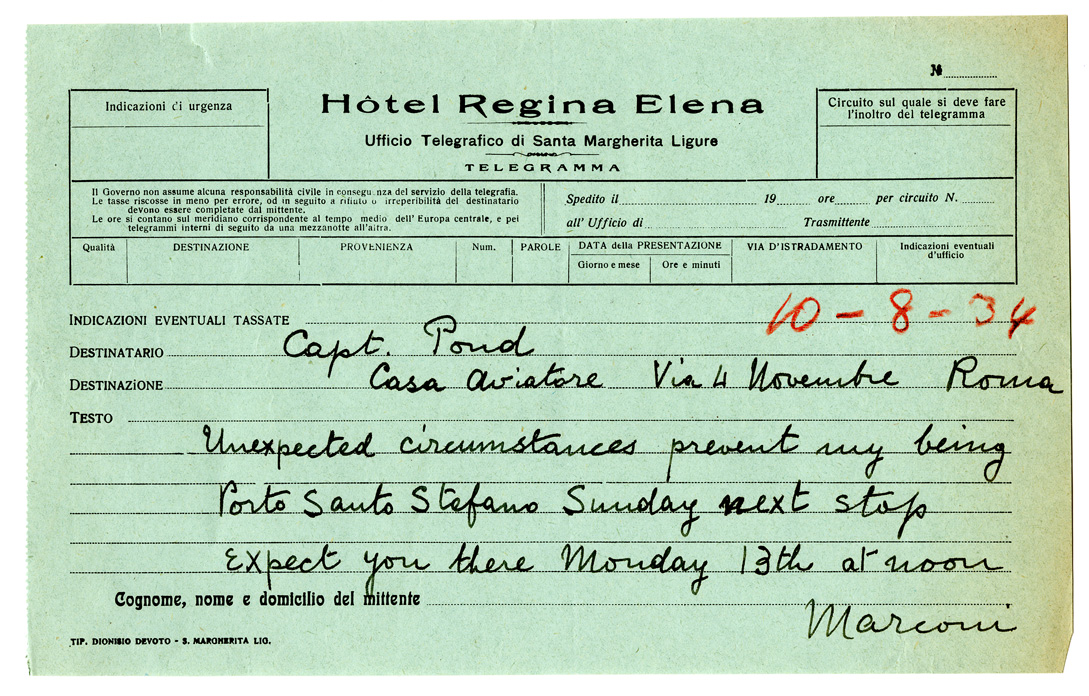 №
Indicazioni di urgenza
Hôtel Regina Elena
Circuito sul quale si deve fare
l'inoltro del telegramma
Ufficio Telegrafico di Santa Margherita Ligure
TELEGRAMMA
Il Governo non assume alcuna responsabilità civile in conseguenza del servizio della telegrafia.
Le tasse riscosse in meno per errore, od in seguito a rifiuto o irreperibilità del destinatario
devono essere completate dal mittente.
Le ore si contano sul meridiano corrispondente al tempo medio dell'Europa centrale, e pei
telegrammi interni di seguito da una mezzanotte all'altra.
Spedito il 19 ore per circuito N.
all'Ufficio di Trasmittente
Qualità DESTINAZIONE PROVENIENZA Num. PAROLE DATA della PRESENTAZIONE VIA D'ISTRADAMENTO Indicazioni eventuali
d'ufficio
Giorno e mese Ore e minuti
10-8-34
INDICAZIONI EVENTUALI TASSATE
DESTINATARIO Capt. Pond
DESTINAZIONE Casa Aviatore Via 4 Novembre Roma
TESTO
Unexpected circumstances prevent my being
Porto Santo Stefano Sunday next stop
Expect you there Monday 13th at noon
Cognome, nome e domicilio del mittente
Marconi
TIP. DIONISIO DEVOTO - S. MARGHERITA LIG.